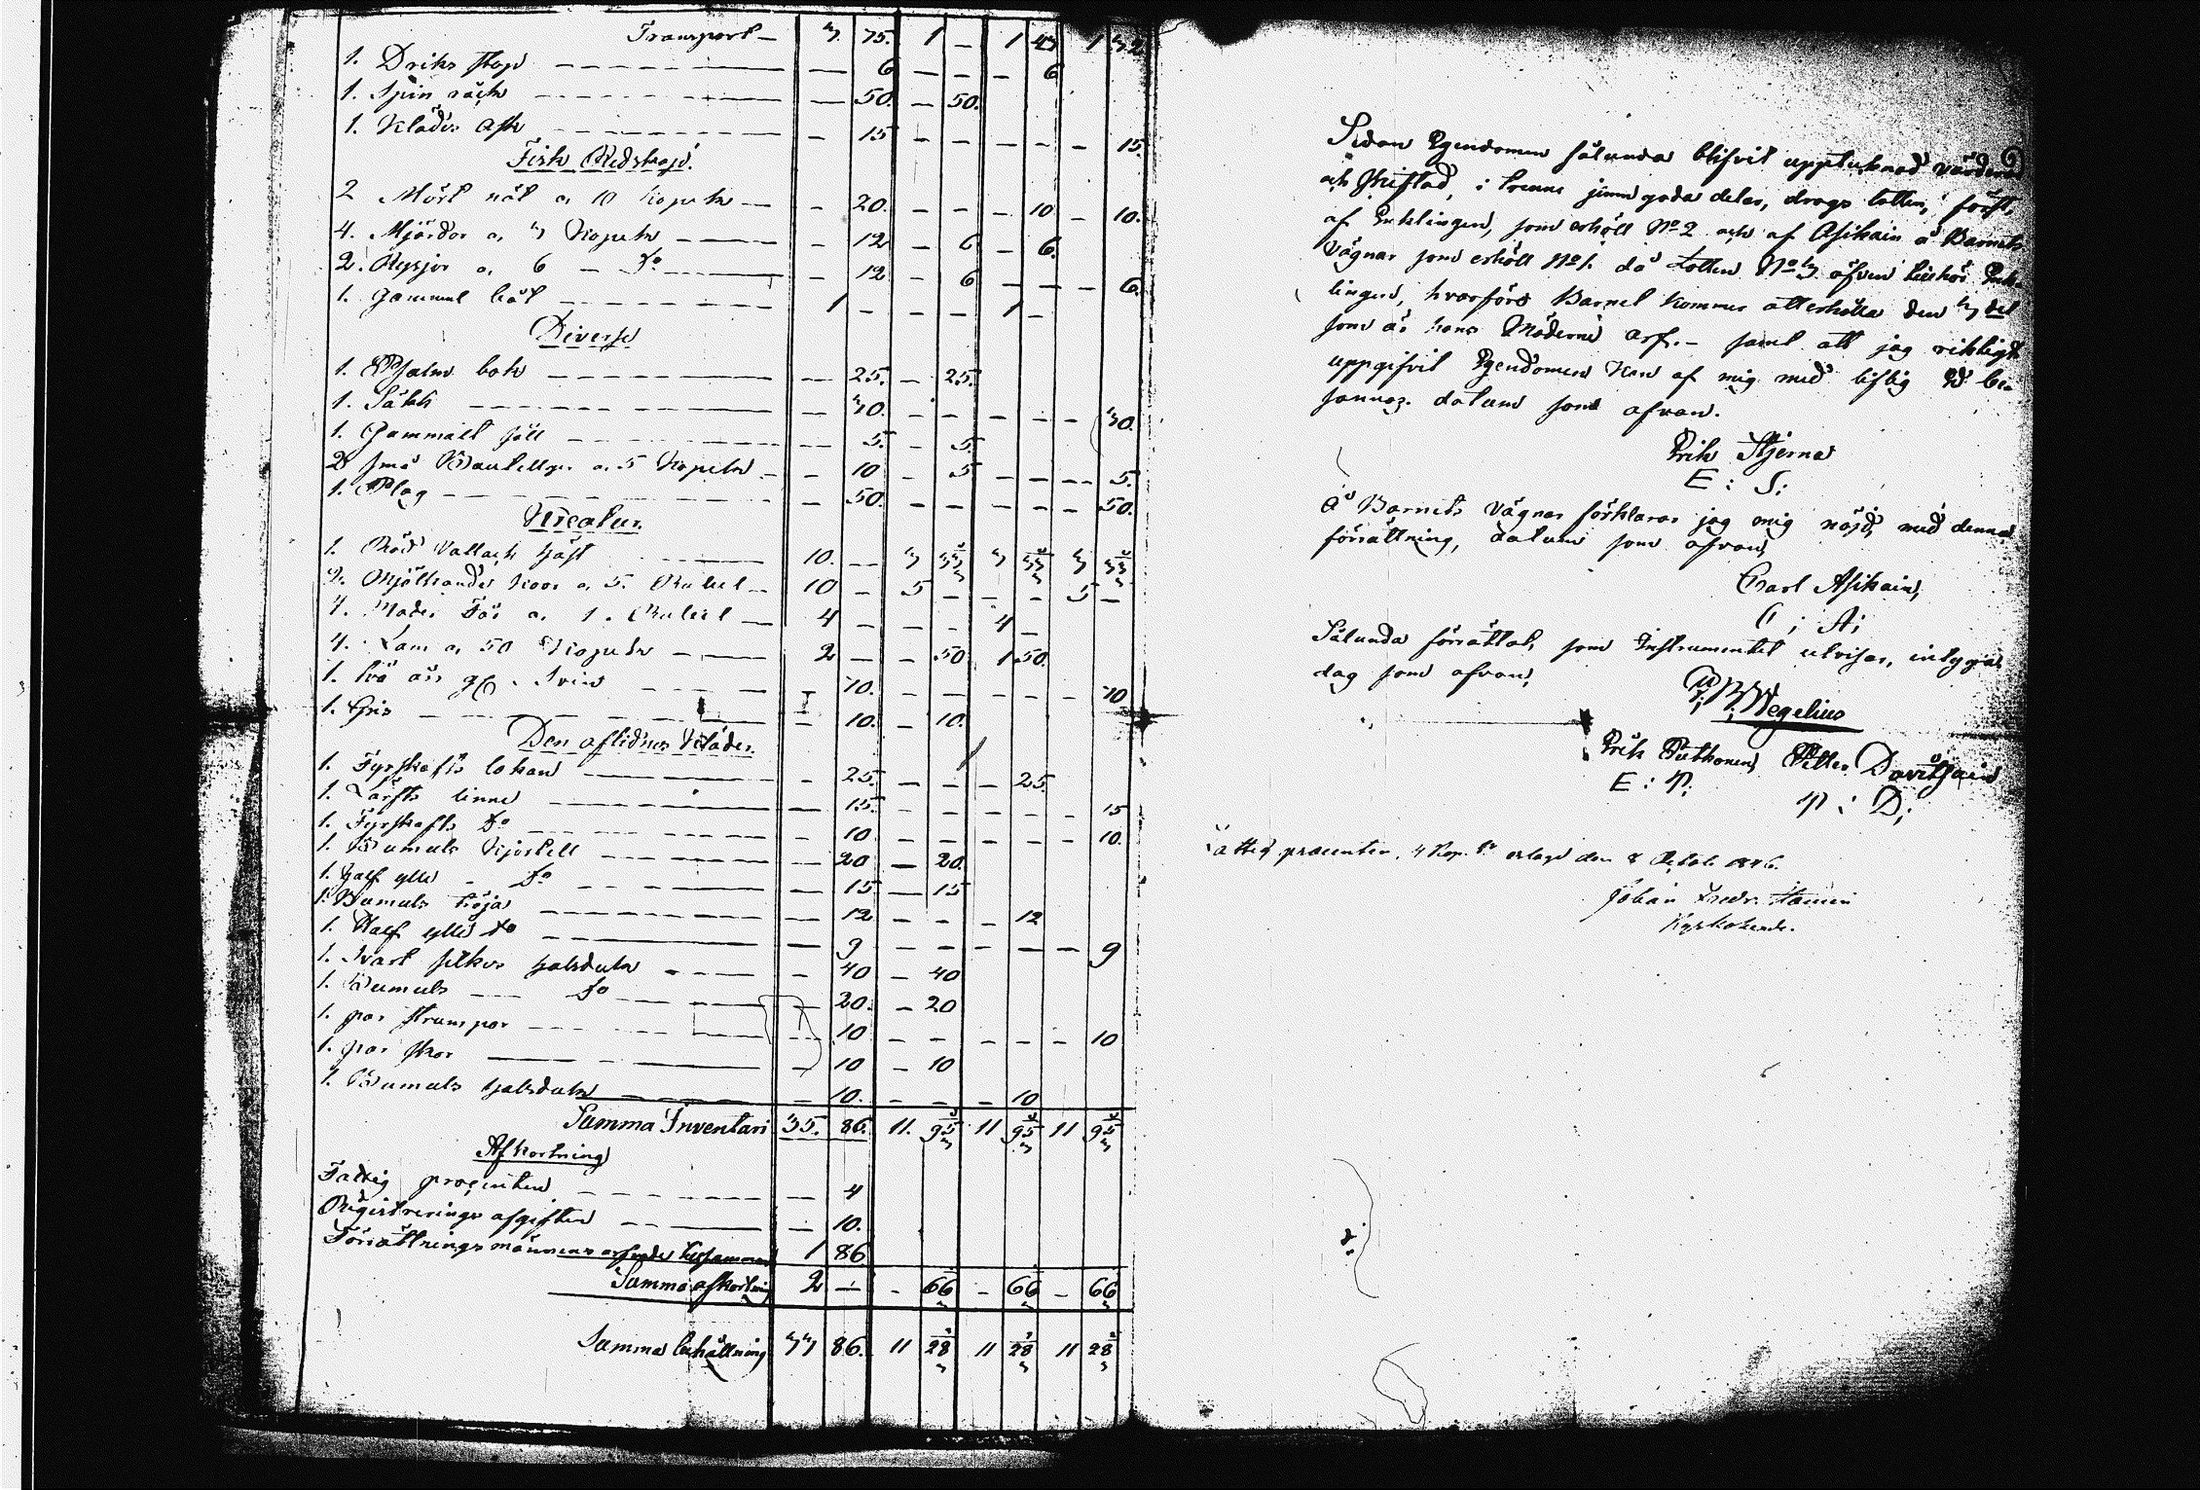 Transport — 3. 75. 1 — 1 43 1 32
1. Driks stop — 6 — — — 6
1. Spin råck — 50. — 50.
1. Kläder Ask — 15 — — — — — 15.
Fisk Redskap.
2 Mört nät a 10 Kopek — 20. — — — 10 — 10.
4. Mjärdor a 3 Kopek — 12 — 6 — 6.
2. Rysjor a 6 — Do — 12 — 6 — — — 6.
1. Gammal båt 1 — — — 1 —
Diverse
1. Psalm bok — 25. — 25.
1. Säck — 30. — — — — — 30.
1. Gammalt — 5. — 5.
2 små Boutellger a 5 Kopek — 10 — 5 — — — 5.
1. Plog — 50. — — — — — 50.
Kreatur.
1. Röd Vallack häst 10. — 3 33 3 33 3 33
2. Mjölkande Koor a 5. Rubel 10 — 5 — — — 5 —
4. Moder Får a 1. Rubel 4 — — — 4 —
4. Lam a 50 Kopek 2 — — 50 1 50.
1. två års Svin — 70. — — — — — 70
1. Gris — 10. — 10.
Den aflidnes Kläder.
1. Fyrskafts — 25. — — — 25.
1. Lärfts linne — 15. — — — — — 15
1. Fyrskafts Do — 10 — — — — — 10.
1. Bumuls Kjortell — 20 — 20.
1. Half ylle Do — 15 — 15
1. Bumuls tröja — 12 — — — 12
1. Half ylle Do — 9 — — — — — 9
1. Svart silkes halsduk — 40 — 40
1. Bumuls — Do — 20. — 20
1. par strumpor — 10 — — — — — 10
1. par skor — 10 — 10
1. Bumuls halsduk — 10. — — — 10
Summa Inventari 35. 86. 11. 95 11 95 11 95
Afkortning
Fattig procenten — 4
Registrerings afgiften — 10.
Förrättningsmännens arfvode tillsamman 1 86
Summa afkortning 2 — — 66 — 66 — 66
Summa behållning 33 86. 11 28 11 28 11 28
Sedan Egendomen sålunda blifvit upptecknad värderad
och skiftad, i trenne jemngoda delar, drogs lotten, först,
af Enklingen, som erhöll No 2 och af Asikain å Barnets
vägnar som erhöll No 1. då Lotten No 3 äfven tillhör Enk-
lingen, hvarföre Barnet kommer att erhålla den 3 del
som är hans Möderne arf. — samt att jag riktigt
uppgifvit Egendomen kan af mig med liflig Ed be-
sannas. datum som ofvan.
Erik Stjerna
E: S:
Å Barnets vägnar förklarar jag mig nöjd, med denna
förrättning, datum som ofvan,
Carl Asikain,
C; A;
Sålunda förrättat, som Instrumentet utvisar, intygar
dag som ofvan,
Wegelius
Erik Putkonen Petter Davitsain
E: P: P: D;
Fattig procenten, 4 Kop. Sr erlagd den 8 Octob. 1846.
Johan Fredr.
Kyrkoherde.